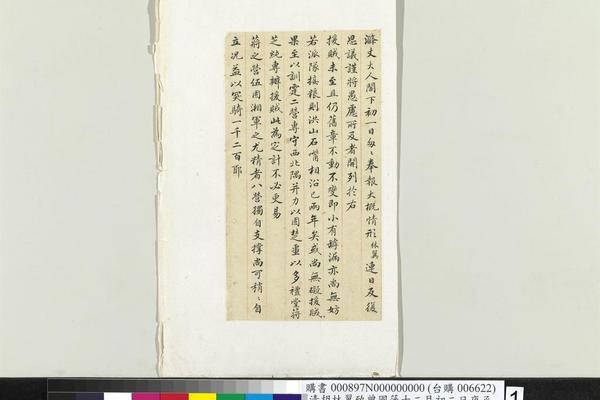 滌丈大人閣下初一日匆匆奉報大概情形林翼連日反復
思議謹將愚慮所及者開列於右
援賊未至且仍舊章不動不變即小有罅漏亦尚無妨
若派隊接粮則洪山石嘴相沿已兩年矣或尚無礙援賊
果至以訓霆二營專守西北隅并力以固楚疆以多禮堂蔣
芝純專辦援賊此為定計不必更易
蔣之營伍固湘軍之尤精者八營獨自支撐尚可稍稍自
立況益以突騎一千二百耶
購書 000897N000000000 (台購 006622)
清胡林翼致曾國藩十二月初二日夜函
1